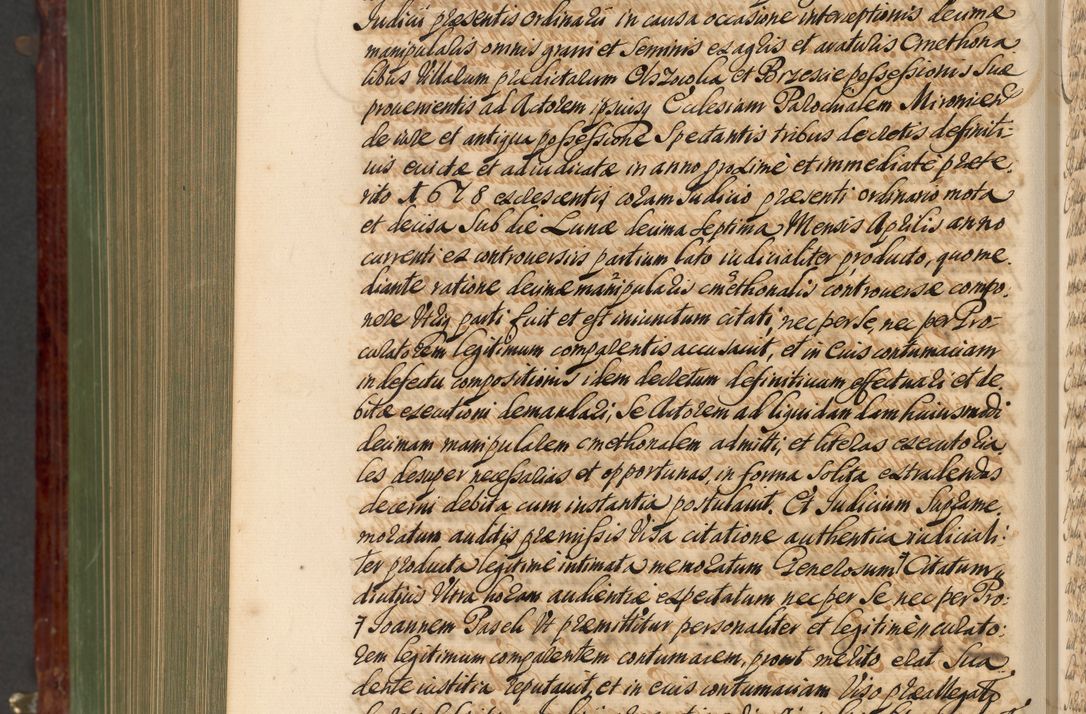 Judicii præsentis ordinarii in causa occasione interceptionis decimæ
manipularis omnis grani et seminis ex agris et araturis Cmethona
libus Villarum prædictarum Olszowka et Brzezie possessionis suæ
prouenientis ad Actorem ipsiusq Ecclesiam Parochialem Mironicen
de iure et antiqua possessione Spectantis tribus decretis definiti-
uis euictæ et adiudicatæ in anno proximè et immediatè præte.
rito 1678 excrescentis coram Judicio præsenti ordinario mota
et decisa sub die Lunæ decima septima Mensis Aprilis anno
currenti ex controuersiis partium lato iudicialiter producto, quo me.
diante ratione decimæ manipularis cmethonalis controuersæ compo.
nere Utriq parti fuit et est iniunctum citati, nec per se, nec per Pro-
curatorem legitimum comparentis accusauit, et in eius contumaciam
in defectu compositionis idem decretum definitiuum effectuari et de
bitæ executioni demandari, se Actorem ad liquidandam huiusmodi
decimam manipularem cmethonalem admitti, et literas executoria
les desuper necessarias et opportunas, in forma solita extradendas
decerni debita cum instantia postulauit. Et Judicium supræme.
moratum auditis præmissis Visa citatione authentica iudiciali:
ter producta legitimè intimata memoratum Generosum ꟻ Citatum
diutius Ultra horam audientiæ expectatum nec per se nec per Pro:
ꟻ Joannem Paseli Ut præmittitur personaliter et legitimè curato:
rem legitimum comparentem contumacem, prout meritò erat sua
dente iustitia reputauit, et in eius contumaciam Viso præallegato